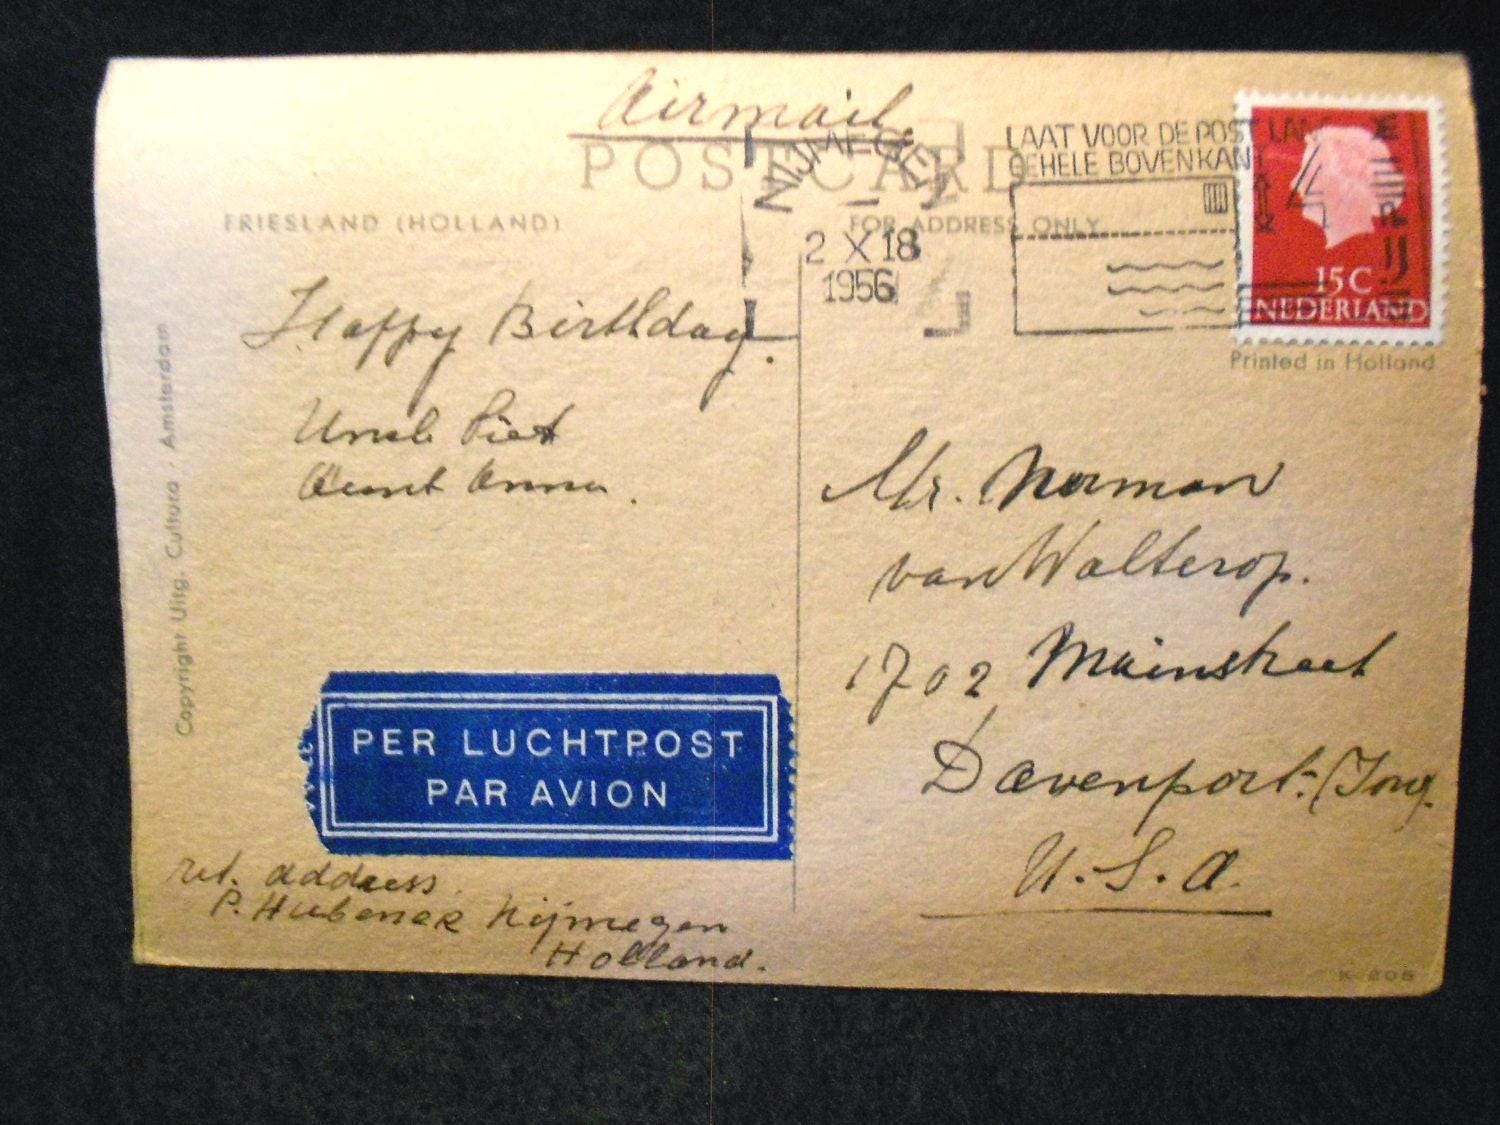 Airmail
POSTCARD
FRIESLAND (HOLLAND)
FOR ADDRESS ONLY
NIJMEGEN
2 X 18
1956
LAAT VOOR DE POST LANGS DE
GEHELE BOVENKANT
15 C
NEDERLAND
Printed in Holland
Happy Birthday.
Uncle Piet
Aunt Anna.
Mr. Norman
van Walterop.
1702 Mainstreet
Davenport
U.S.A.
PER LUCHTPOST
PAR AVION
ret. address
P. Hubener Nijmegen
Holland.
Copyright Uitg. Cultura · Amsterdam
K 206